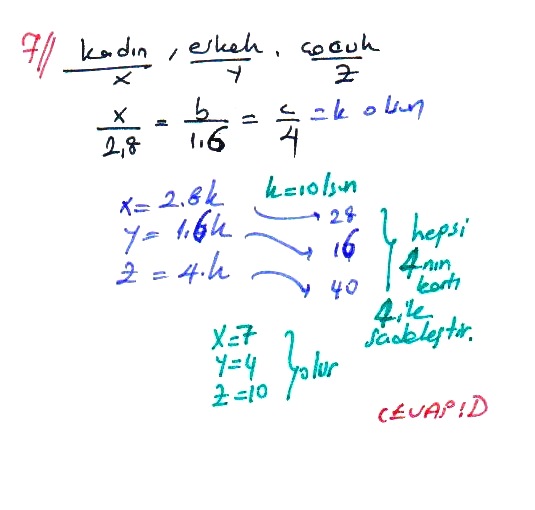 7// kadın, erkek, çocuk
x y z
x/2,8 = b/1.6 = c/4 = k olsun
x = 2.8k k=10 olsun 28
y = 1.6k 16
z = 4.k 40
hepsi 4 nın katı
4 ile sadeleştir.
x=7
y=4
z=10
olur
CEVAP: D